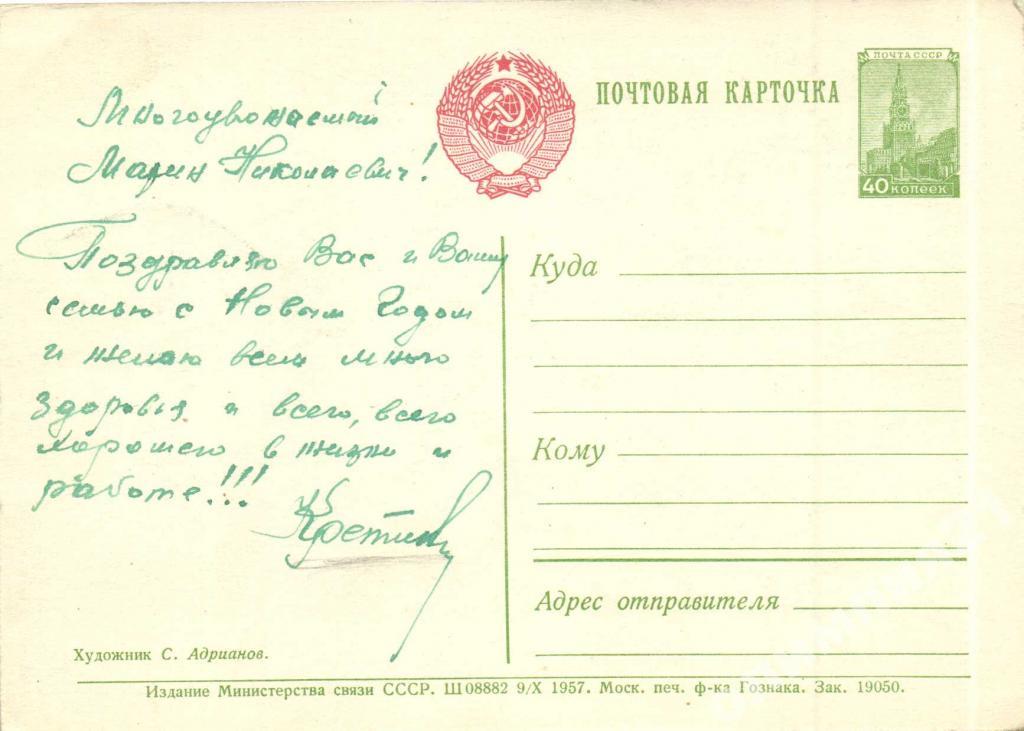 ПОЧТА СССР
ПОЧТОВАЯ КАРТОЧКА
40 КОПЕЕК
Многоуважаемый
Марин Николаевич!
Поздравляю Вас и Вашу
семью с Новым Годом
и желаю всем много
здоровья и всего, всего
хорошего в жизни и
работе!!!
Куда
Кому
Адрес отправителя
Художник С. Адрианов.
Издание Министерства связи СССР. Ш 08882 9/X 1957. Моск. печ. ф-ка Гознака. Зак. 19050.